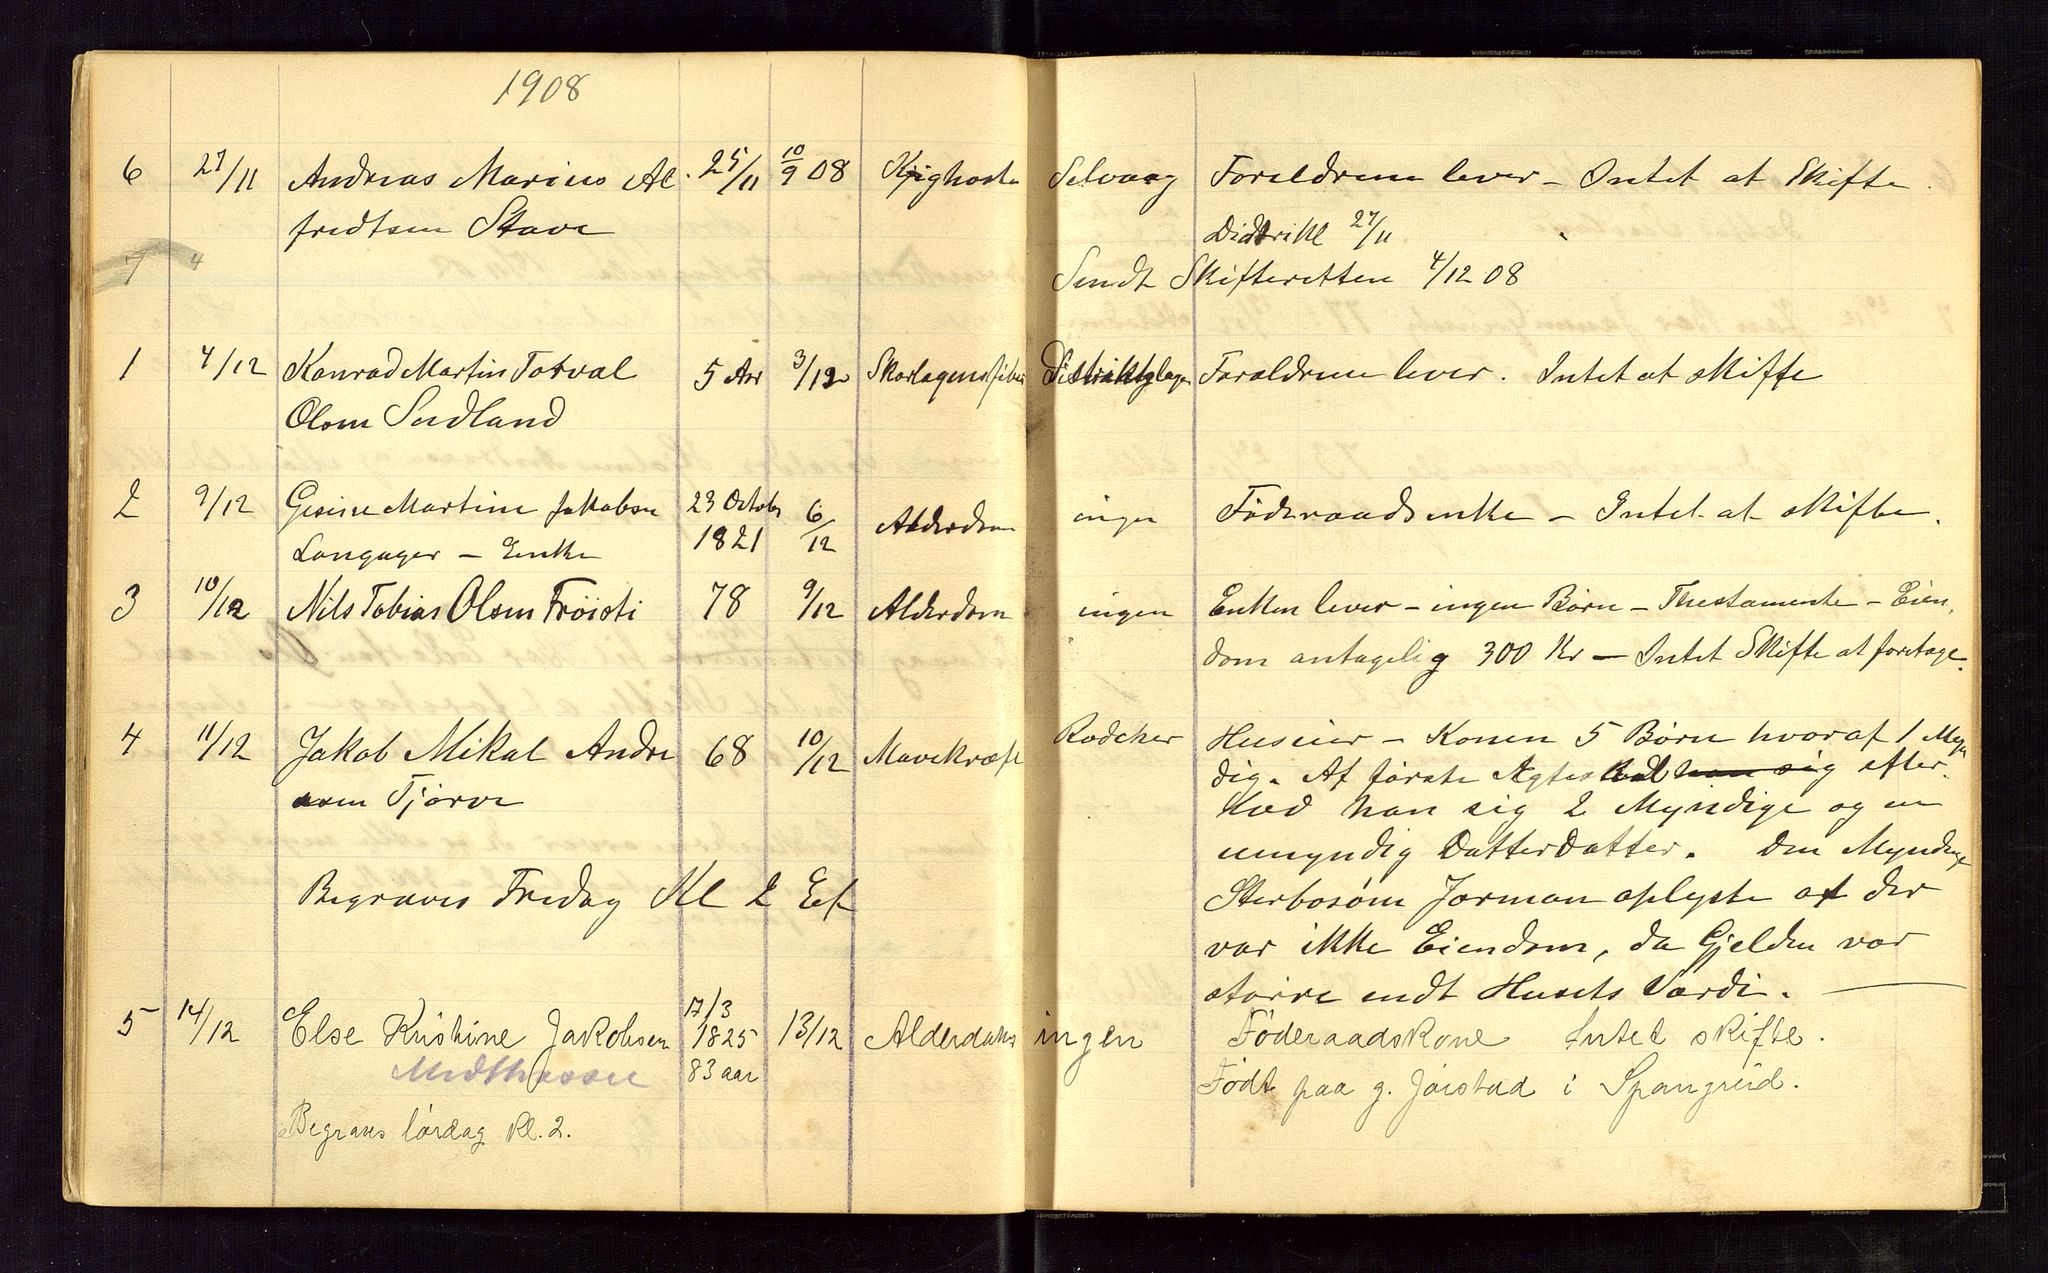 1908
6 27/11 Andreas Marius Al- 25/11 10/9 08 Kighoste Selvaag Foreldrene lever – Intet at Skifte.
fredtsen Stave Didrikl 27/11
7 4 Sendt Skifteretten 4/12 08
1 4/12 Konrad Martin Torval 5 Aar 3/12 Skarlagensfiber Distriktslægen Foraldrene lever. Intet at skifte
Olsen Sudland
2 9/12 Gesine Martine Jakobsen 23 Octobr 6/12 Alderdom ingen Föderaadsenke – Intet at skifte.
Langager – Enke 1821
3 10/12 Nils Tobias Olsen Fröisti 78 9/12 Alderdom ingen Enken lever – ingen Børn – Thestamente – Eien,
dom antagelig 300 Kr – Intet Skifte at foretage.
4 11/12 Jakob Mikal Andre 68 10/12 Mavekræft Rødcher Huseier – Konen 5 Børn hvoraf 1 Myn
asen Tjørve dig. Af første Agteskab han sig efter.
lod han sig 2 Myndige og en
umyndig DatterDatter. Den Myndige
Begraves Fredag Kl 2 Ef Sterbosøn Jorman oplyste at der
var ikke Eiendom, da Gjelden var
större endt Husets Værdi.
5 14/12 Else Kristine Jakobsen 17/3 1825 13/12 Alderdoms ingen Föderaadskone Intet skifte.
Midthassel 83 aar Født paa g. Jørstad i Spangreid.
Begraves lördag kl. 2.